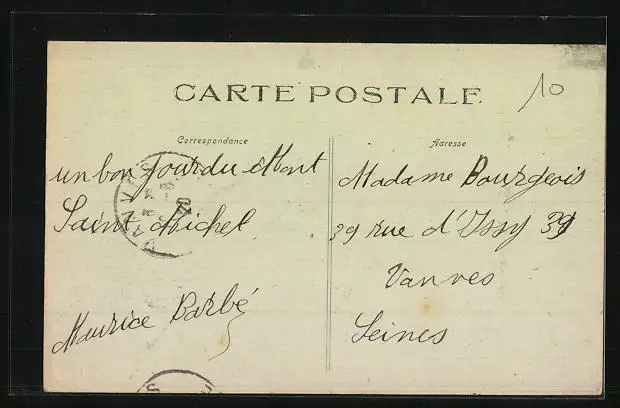 CARTE POSTALE
10
Correspondance
un bon jour du Mont
Saint Michel
Maurice Barbé
Adresse
Madame Bourgeois
39 rue d'Issy 39
Vanves
Seines